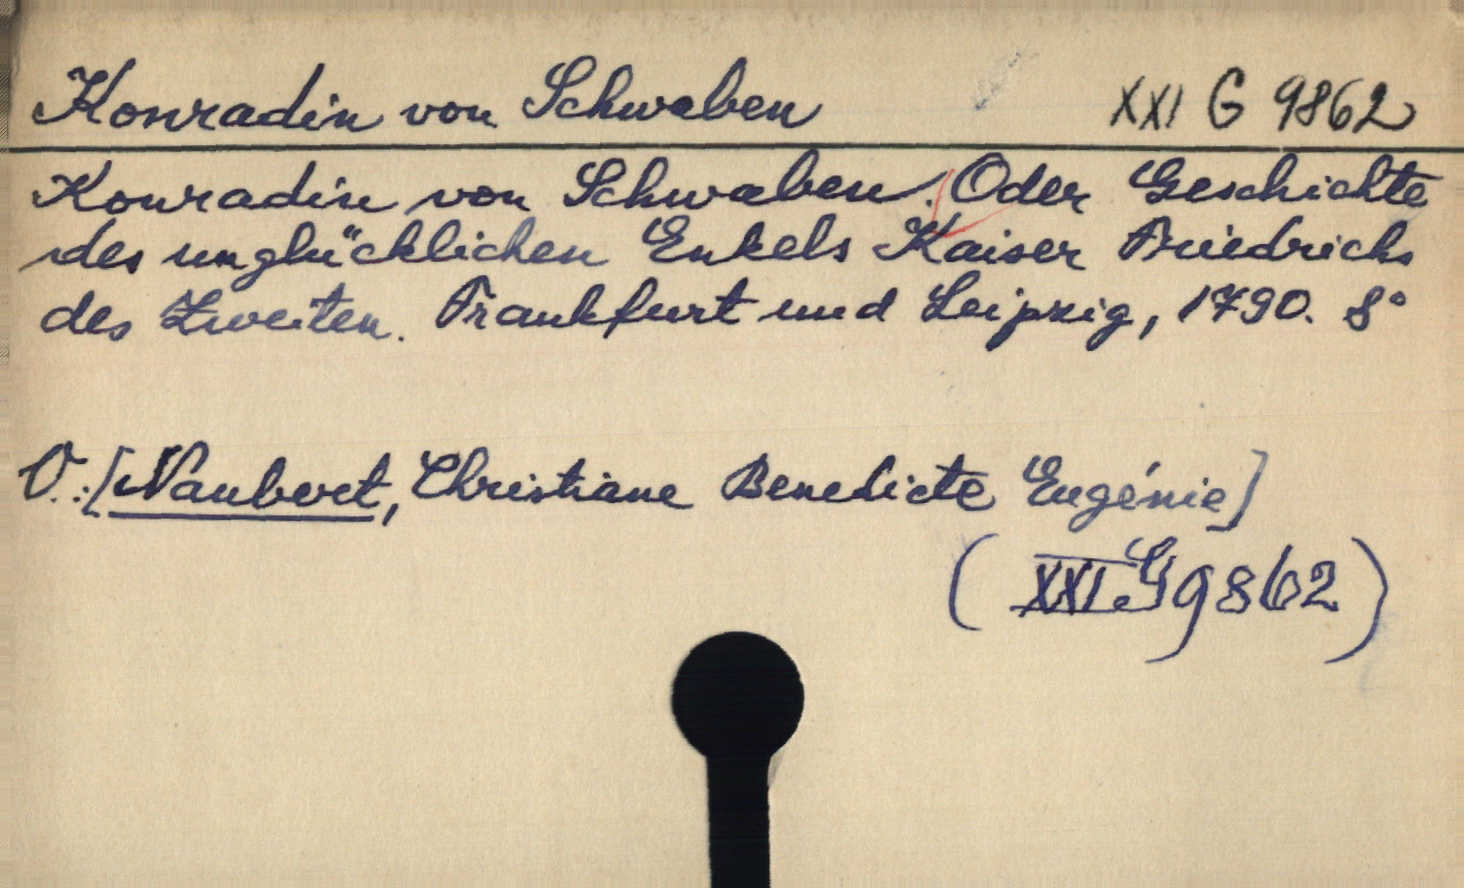 Konradin von Schwaben XXI G 9862
Konradin von Schwaben. Oder Geschichte
des unglücklichen Enkels Kaiser Friedrichs
des Zweiten. Frankfurt und Leipzig, 1790. 8°
V.: [Naubert, Christiane Benedicte Eugénie]
(XXI G 9862)